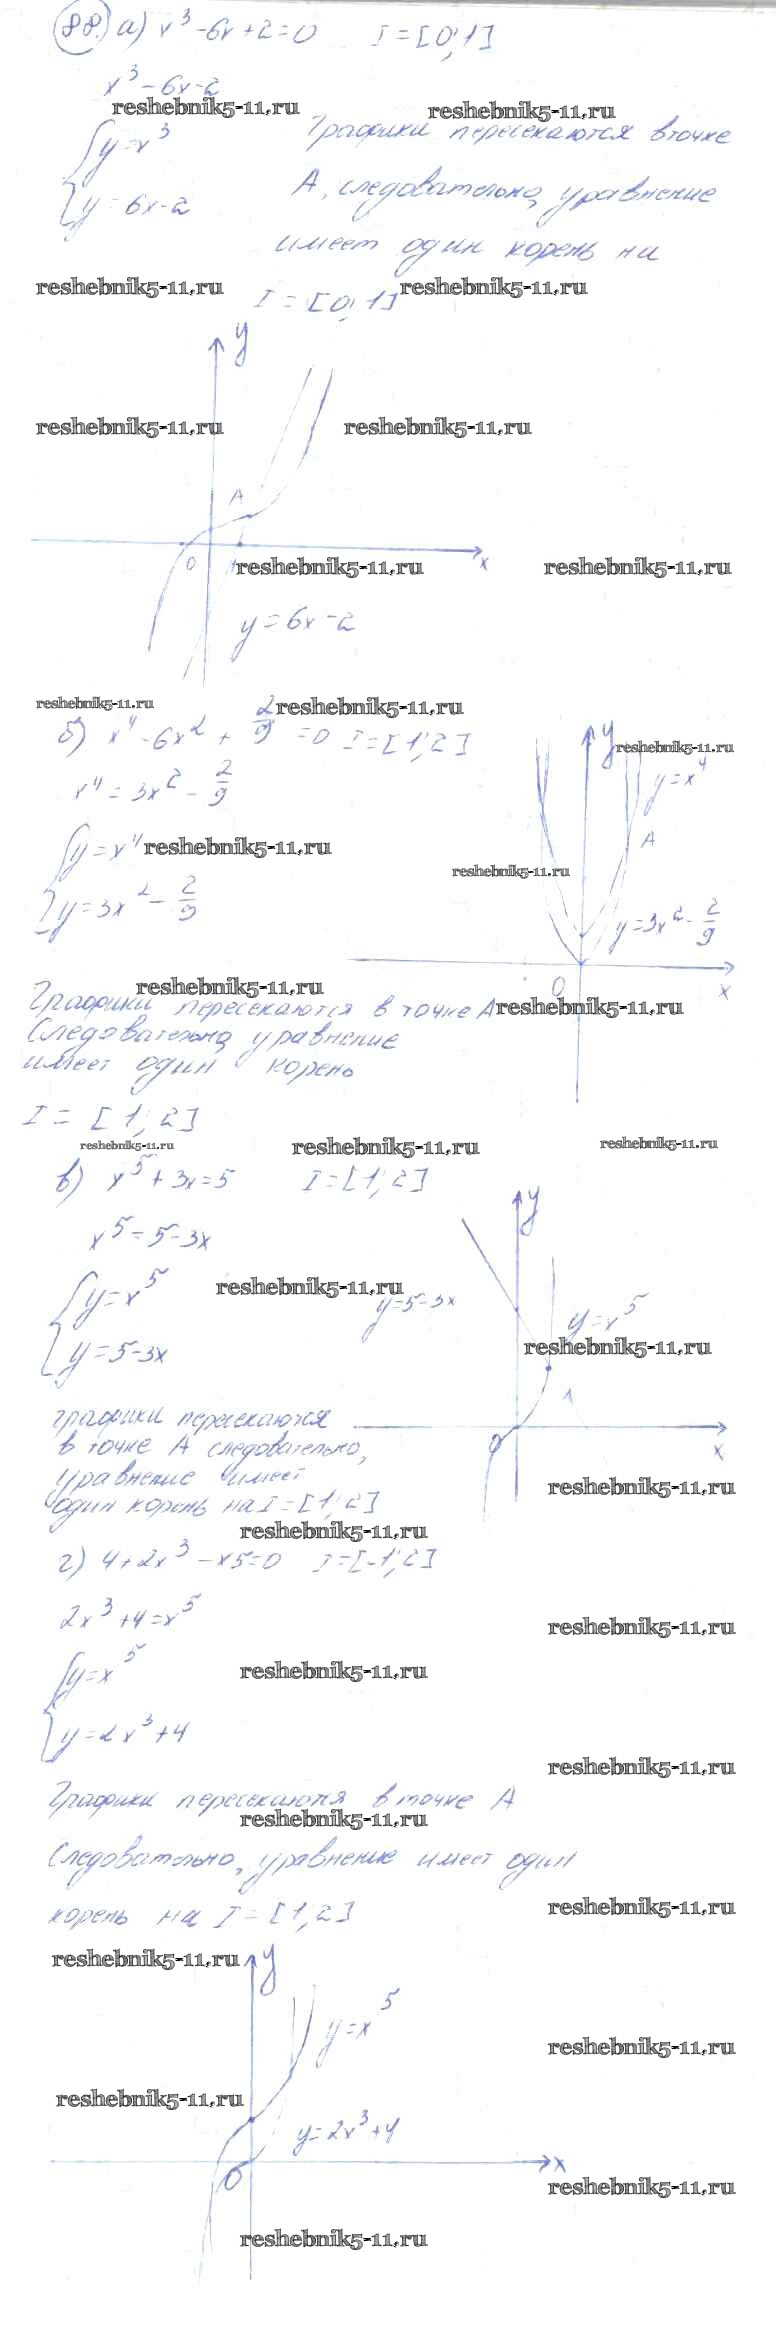 88. а) x³ - 6x + 2 = 0 I = [0; 1]
x³ - 6x - 2
reshebnik5-11.ru reshebnik5-11.ru
{ y = x³
y = 6x - 2
Графики пересекаются в точке
А, следовательно, уравнение
имеет один корень на
reshebnik5-11.ru reshebnik5-11.ru
I = [0; 1]
y
reshebnik5-11.ru reshebnik5-11.ru
A
0 reshebnik5-11.ru x reshebnik5-11.ru
y = 6x - 2
reshebnik5-11.ru reshebnik5-11.ru
б) x⁴ - 6x² + 2/9 = 0 I = [1; 2]
x⁴ = 3x² - 2/9
{ y = x⁴ reshebnik5-11.ru
y = 3x² - 2/9
y reshebnik5-11.ru
y = x⁴
A
reshebnik5-11.ru
y = 3x² - 2/9
0 x
reshebnik5-11.ru
Графики пересекаются в точке А reshebnik5-11.ru
Следовательно, уравнение
имеет один корень
I = [1; 2]
reshebnik5-11.ru reshebnik5-11.ru reshebnik5-11.ru
в) x⁵ + 3x = 5 I = [1; 2]
x⁵ = 5 - 3x
{ y = x⁵ reshebnik5-11.ru
y = 5 - 3x
y
y = 5 - 3x y = x⁵
reshebnik5-11.ru
A
0 x
графики пересекаются
в точке А следовательно,
уравнение имеет
один корень на I = [1; 2]
reshebnik5-11.ru
reshebnik5-11.ru
г) 4 + 2x³ - x5 = 0 I = [-1; 2]
2x³ + 4 = x⁵
reshebnik5-11.ru
{ y = x⁵ reshebnik5-11.ru
y = 2x³ + 4
reshebnik5-11.ru
Графики пересекаются в точке А
reshebnik5-11.ru
Следовательно, уравнение имеет один
корень на I = [1; 2] reshebnik5-11.ru
reshebnik5-11.ru y
y = x⁵
reshebnik5-11.ru
reshebnik5-11.ru
y = 2x³ + 4
0 x
reshebnik5-11.ru
reshebnik5-11.ru